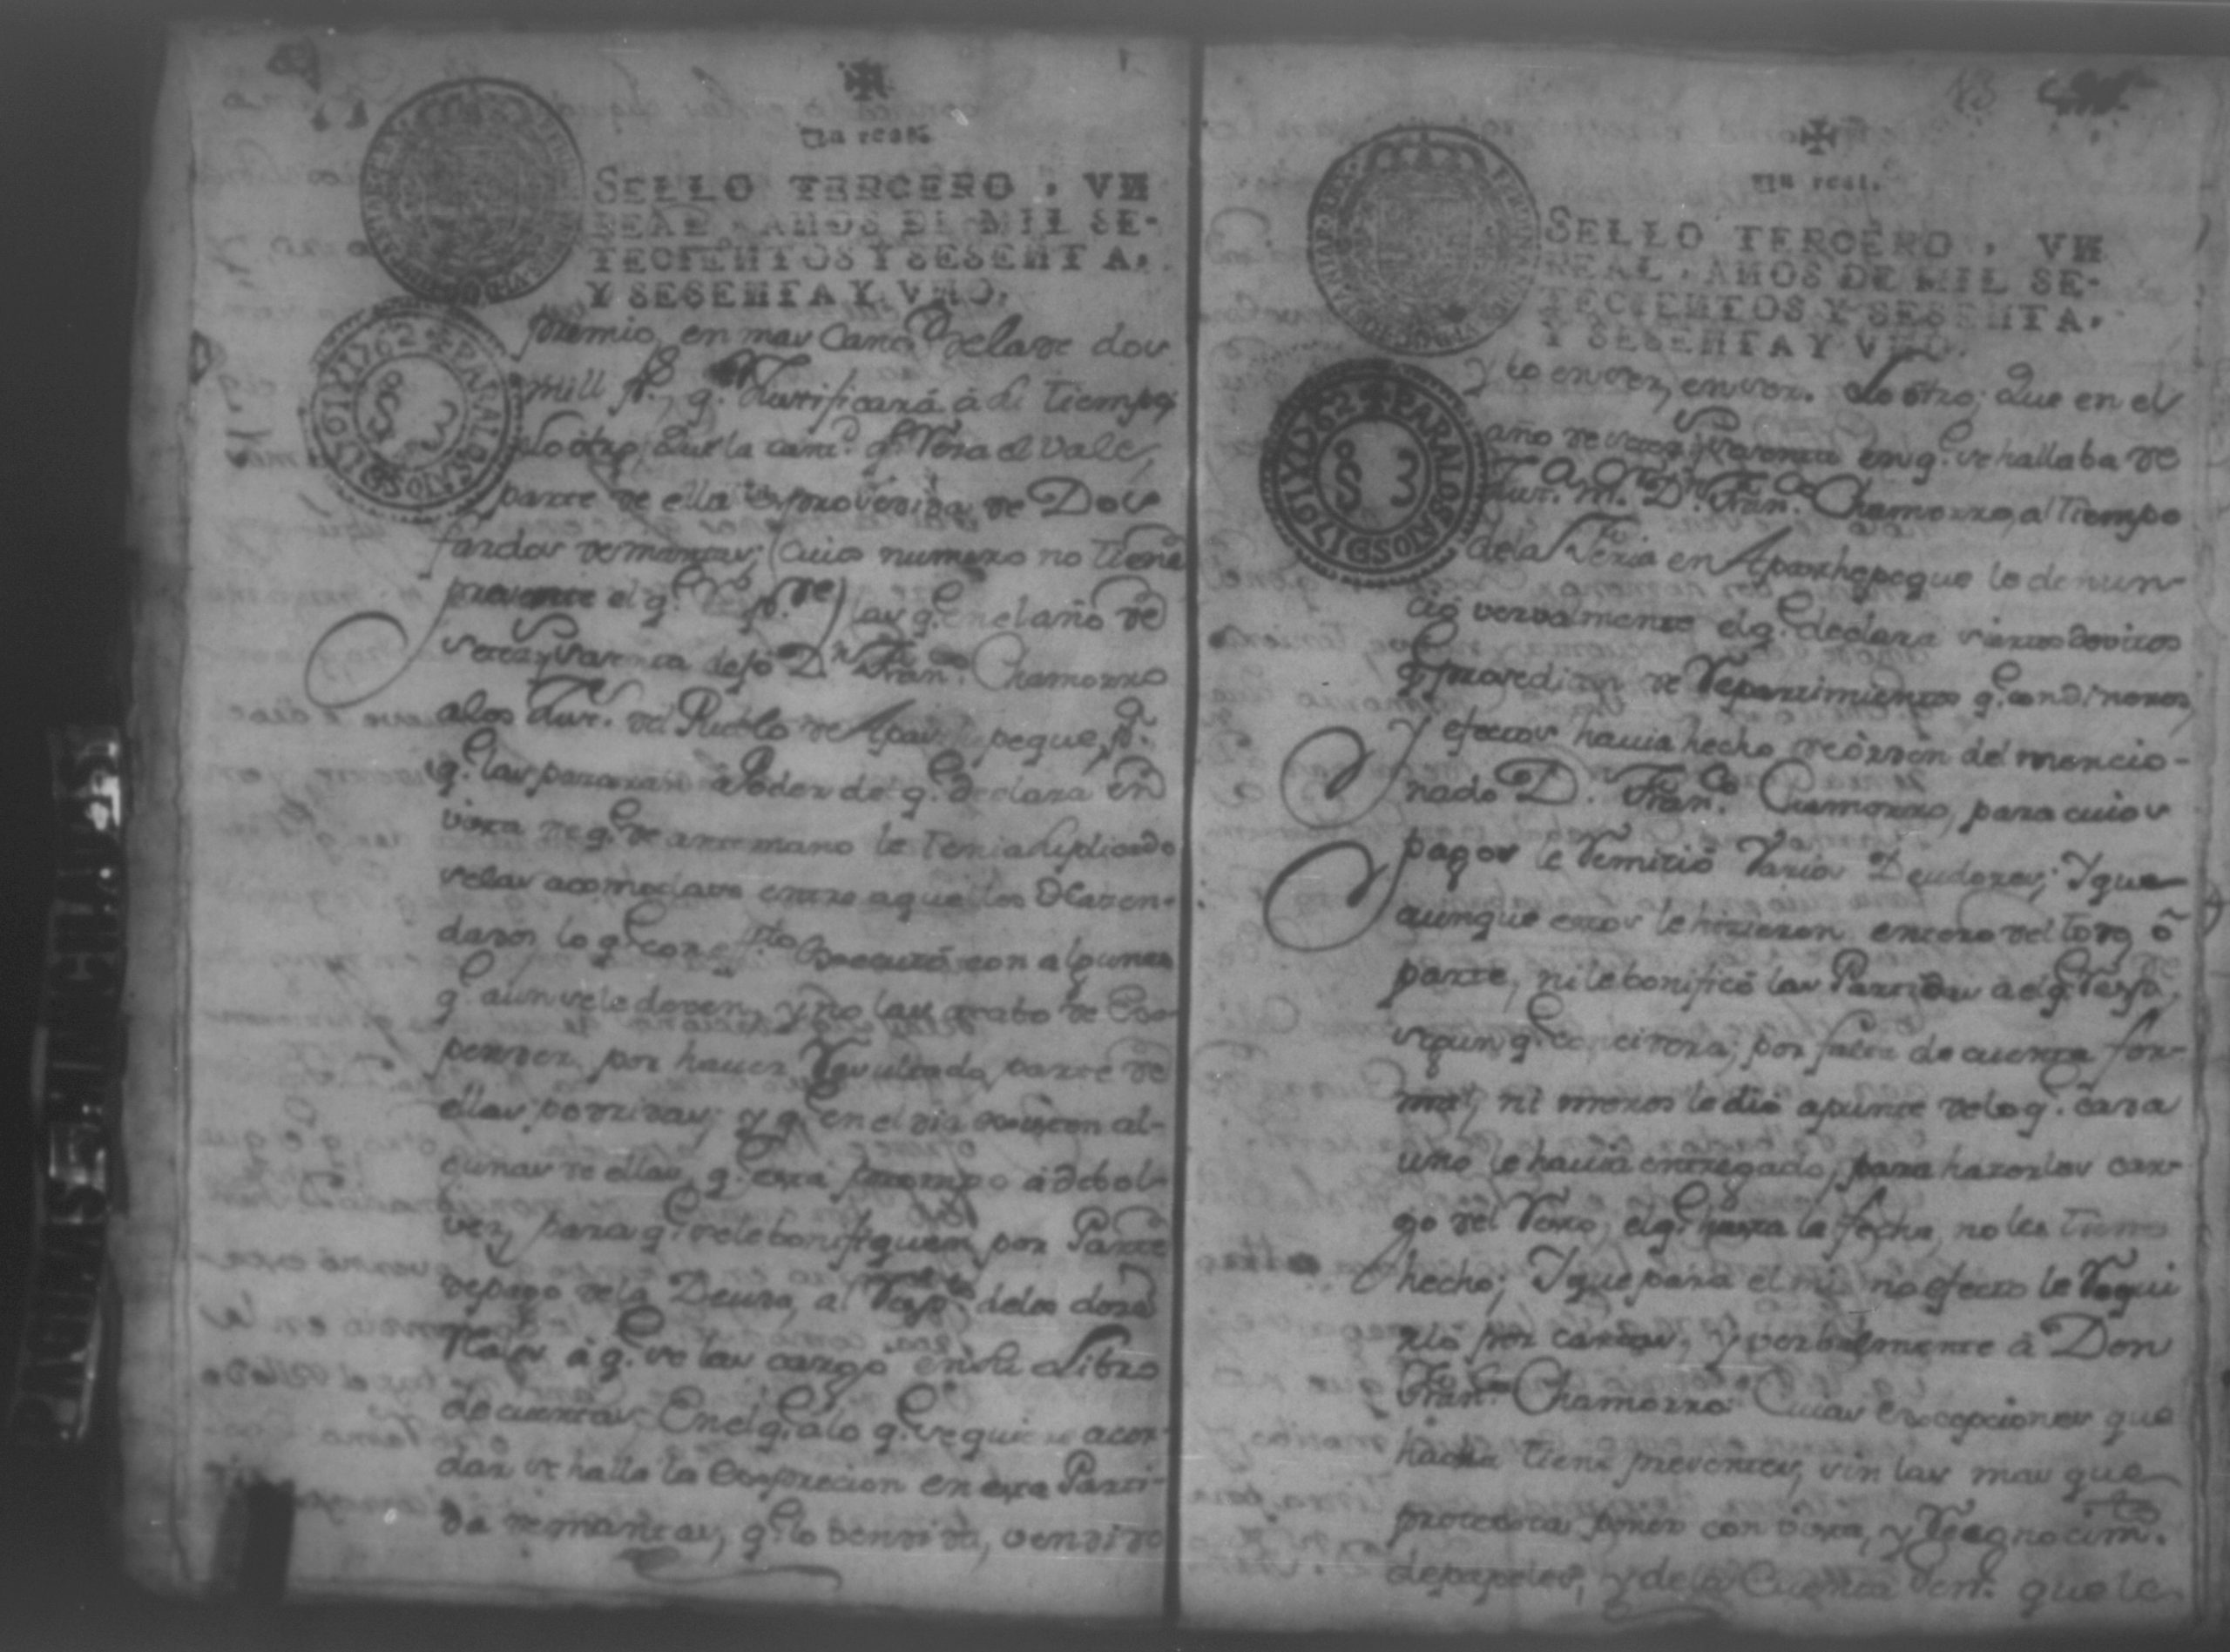 Un real.
SELLO TERCERO, VN
REAL, AÑOS DE MIL SE-
TECIENTOS Y SESENTA,
Y SESENTA Y VNO.
PARA LOS AÑOS DE 1761 Y 1762
S 3
premio, en mas cant.d dela de dos
mill p.s q.e Justificará á su tiempo;
Lo otro, Que la cant.d q.e Reza el Vale,
parte de ella es provenida de Dos
fardos de mantas; (cuio numero no tiene
presente el q.e
las q.e en el año de
setez.s y sesenta dejó D.n Fran.co Chamorro
alos Just.s del Pueblo de peque, p.a
q.e las pasaran á Poder del q.e declara en
vista de q.e de antemano le tenia suplicado
selas acomodara entre aquellos
lo q.e con efecto executó con algunas
q.e aun se le deven, y no las acabó de Ex-
pender, por haver Resultado parte de
ellas podridas; y q.e en el dia existen al-
gunas de ellas, q.e está prompto á debol-
ver, para q.e sele bonifiquen por Parte
de pago dela Deuda, al Resp.to delos doze
Reales á q.e se las cargó en su Libro
de cuentas; En el q.e á lo q.e se quiere acor-
dar se halla la Exprecion en esta Parti-
da de mantas, q.e lo vendido, vendido
18
Un real.
SELLO TERCERO, VN
REAL, AÑOS DE MIL SE-
TECIENTOS Y SESENTA,
Y SESENTA Y VNO.
PARA LOS AÑOS DE 1761 Y 1762
S 3
y lo en ser, en ser. Lo otro; Que en el
año de setez.s y sesenta en q.e se hallaba de
Just.a m.r D.n Fran.co Chamorro, al tiempo
de la Feria en Apasthepeque le denun-
ció vervalmente el q.e declara varios devitos
q.e provedian de Repartimientos q.e en dineros,
y efectos havia hecho de órden del mencio-
nado D.n Fran.co Chamorro, para cuios
pagos le Remitió Varios Deudores; Y que
aunque estos le hizieron entero del todo, ó
parte, ni le bonificó las Partidas á el q.e
segun q.e concidera; por falta de cuenta for-
mal, ni menos le dió apunte de lo q.e cada
uno le havia entregado, para hazerles car-
go del Resto, el q.e hasta la fecha, no les tiene
hecho; Y que para el mismo efecto le Requi
rió por cartas, y verbalmente á Don
Fran.co Chamorro: Cuias Excepciones que
hasta tiene presentes, sin las mas que
protexta poner con vista, y Reconocim.to
de papeles, y de la Cuenta Gen.l que le